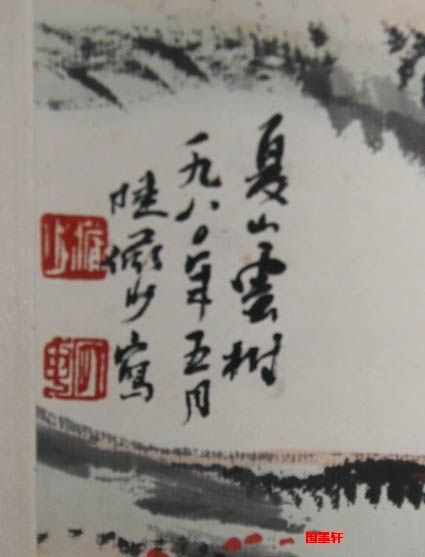 夏山雲樹
一九八〇年五月
陸儼少寫
国墨轩